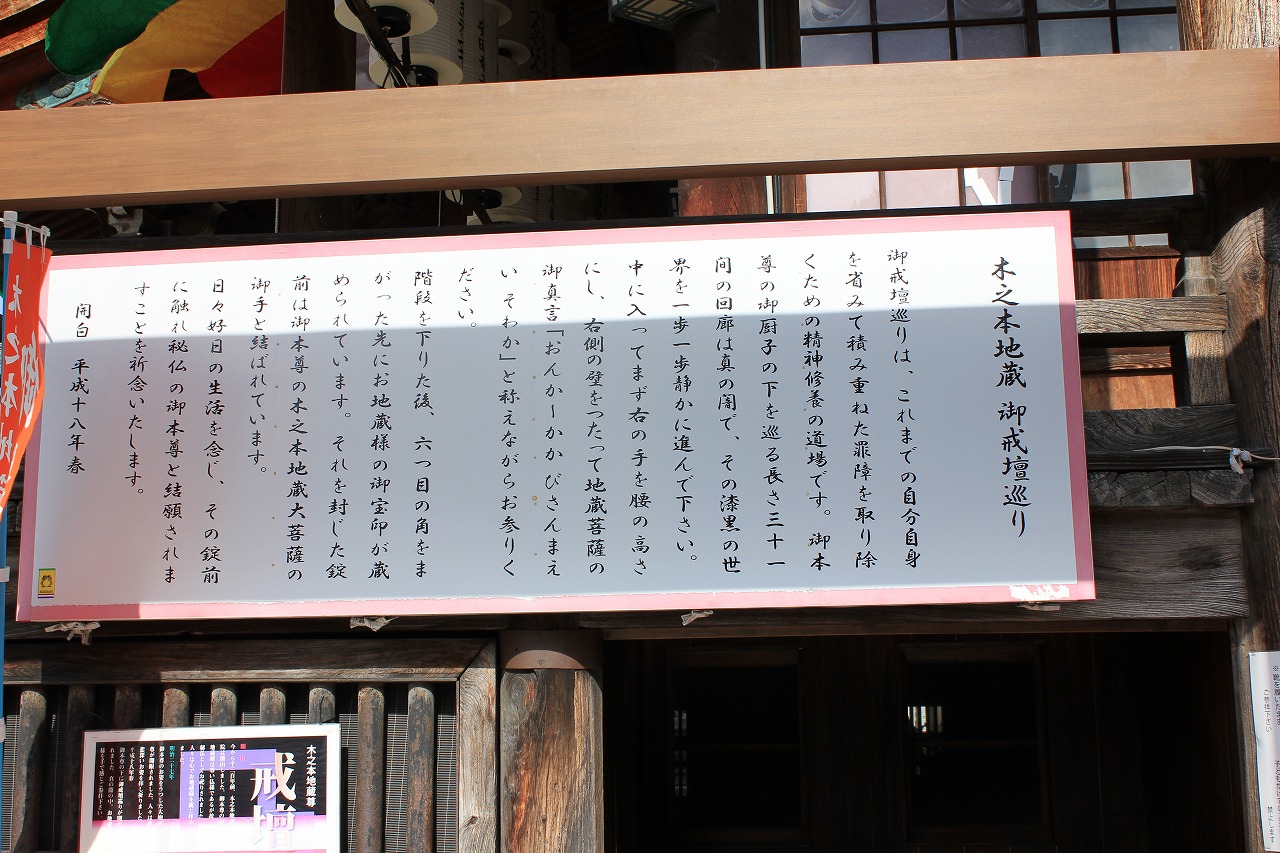 木之本地蔵 御戒壇巡り
御戒壇巡りは、これまでの自分自身
を省みて積み重ねた罪障を取り除
くための精神修養の道場です。御本
尊の御厨子の下を巡る長さ三十一
間の回廊は真の闇で、その漆黒の世
界を一歩一歩静かに進んで下さい。
中に入ってまず右の手を腰の高さ
にし、右側の壁をつたって地蔵菩薩の
御真言「おんかーかかびさんまえ
い そわか」と称えながらお参りく
ださい。
階段を下りた後、六つ目の角をま
がった光にお地蔵様の御宝印が蔵
められています。それを封じた錠
前は御本尊の木之本地蔵大菩薩の
御手と結ばれています。
日々好日の生活を念じ、その錠前
に触れ秘仏の御本尊と結願されま
すことを祈念いたします。
開白 平成十八年 春
木之本地蔵尊
戒壇
明治二十七年
平成十八年春
木之本地
※靴を履いたまま
ご参拝下さい
禁止します